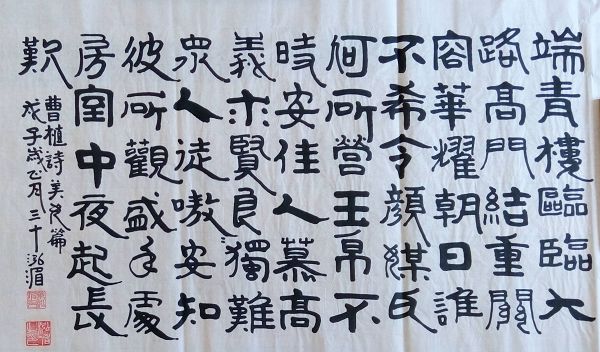 端青樓臨大
路高門結重關
容華耀朝日誰
不希令顏媒氏
何所營玉帛不
時安佳人慕高
義求賢良獨難
衆人徒嗷安知
彼所觀盛年處
房室中夜起長
歎
曹植詩美女篇
戊子歲正月三十泓湄